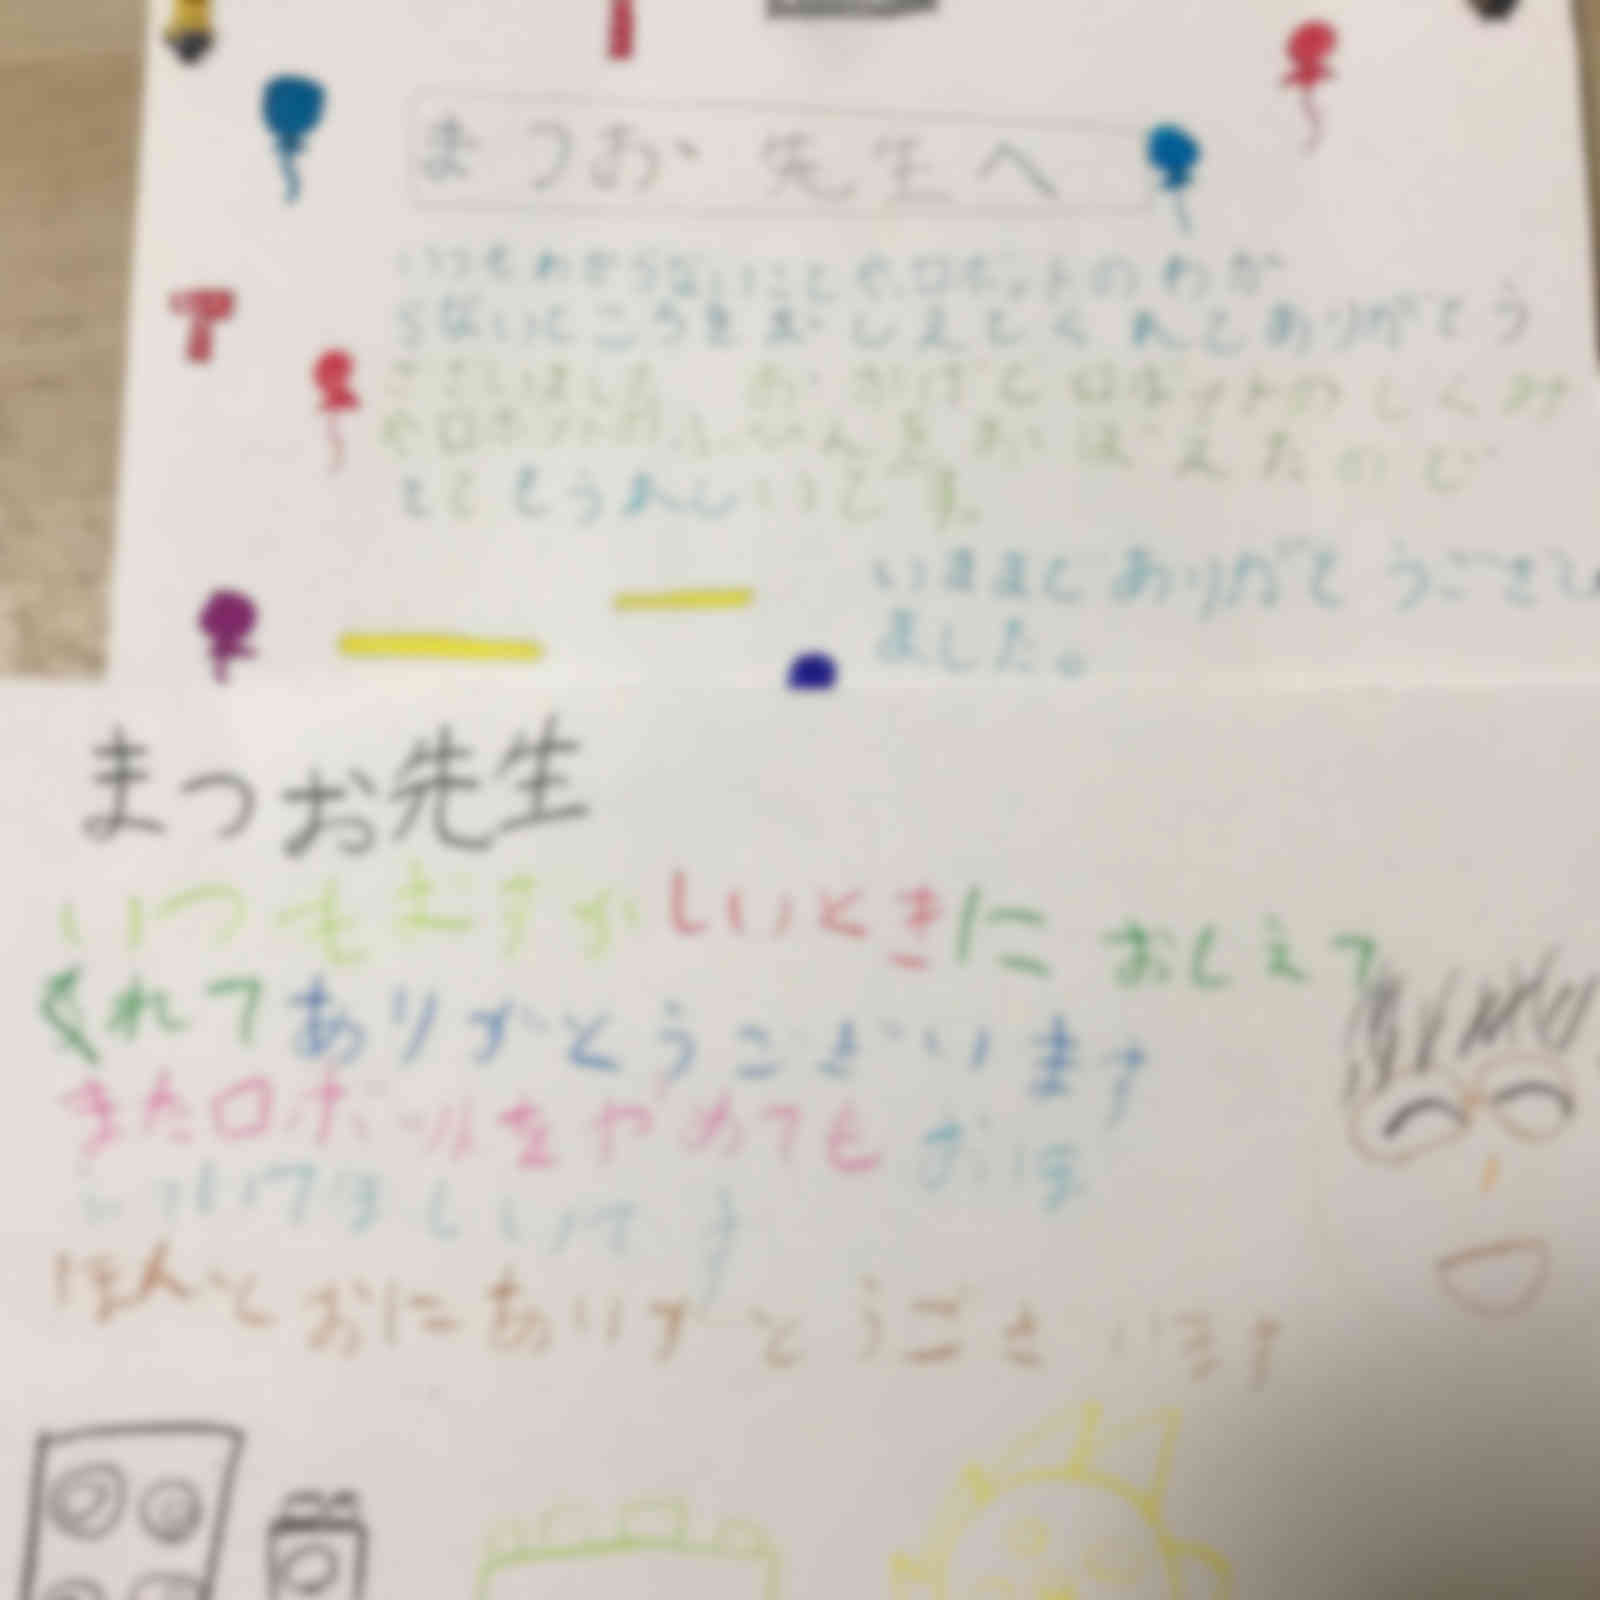 まつお 先生へ
いつもわからないことやロボットのわか
らないところをおしえてくれてありがとう
ございました おかげでロボットのしくみ
やロボットのぶひんをおぼえたので
とてもうれしいです。
いままでありがとうございました
ました。
まつお先生
いつもむずかしいときにおしえて
くれてありがとうございます
またロボールをやめてもおぼ
いてほしいです
ほんとおにありがとうございます